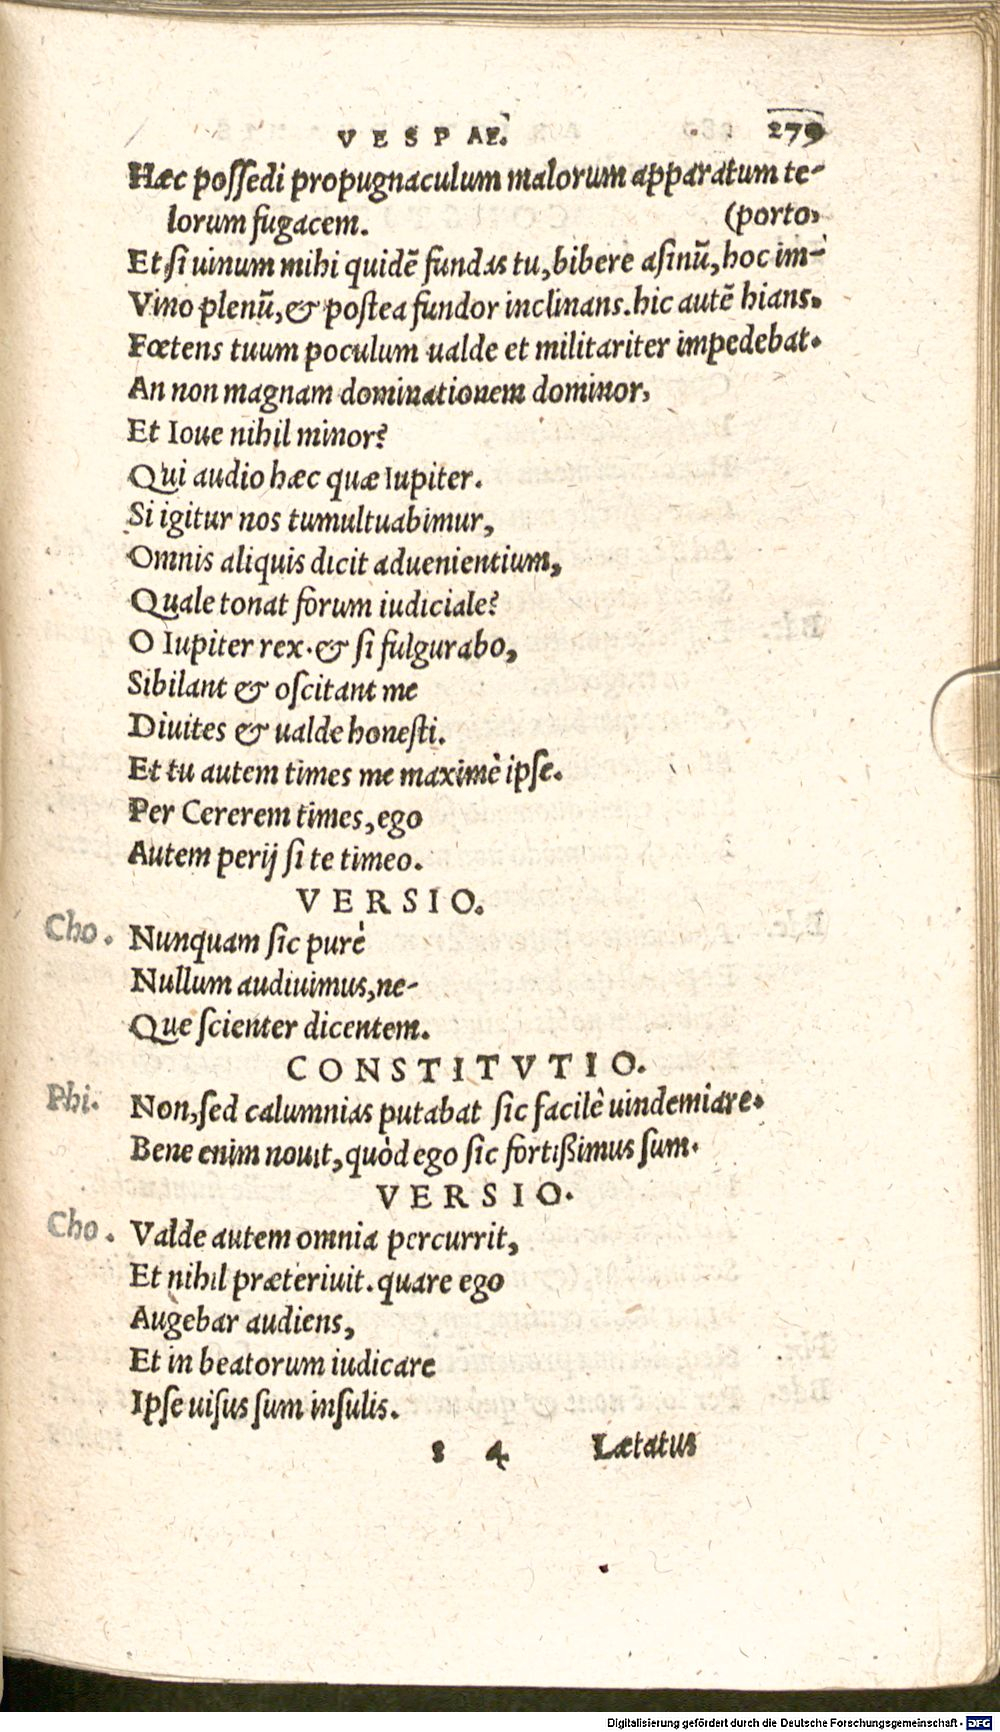 VESPAE. 279
Hæc possedi propugnaculum malorum apparatum te-
lorum fugacem. (porto,
Et si uinum mihi quidẽ fundas tu, bibere asinũ, hoc im-
Vino plenũ, & postea fundor inclinans. hic autẽ hians.
Fœtens tuum poculum ualde et militariter impedebat.
An non magnam dominationem dominor,
Et Ioue nihil minor?
Qui audio hæc quæ Iupiter.
Si igitur nos tumultuabimur,
Omnis aliquis dicit aduenientium,
Quale tonat forum iudiciale?
O Iupiter rex. & si fulgurabo,
Sibilant & oscitant me
Diuites & ualde honesti.
Et tu autem times me maximè ipse.
Per Cererem times, ego
Autem perij si te timeo.
VERSIO.
Cho. Nunquam sic purè
Nullum audiuimus, ne-
Que scienter dicentem.
CONSTITVTIO.
Phi. Non, sed calumnias putabat sic facilè uindemiare.
Bene enim nouit, quòd ego sic fortißimus sum.
VERSIO.
Cho. Valde autem omnia percurrit,
Et nihil præteriuit. quare ego
Augebar audiens,
Et in beatorum iudicare
Ipse uisus sum insulis.
s 4 Lætatus
Digitalisierung gefördert durch die Deutsche Forschungsgemeinschaft - DFG